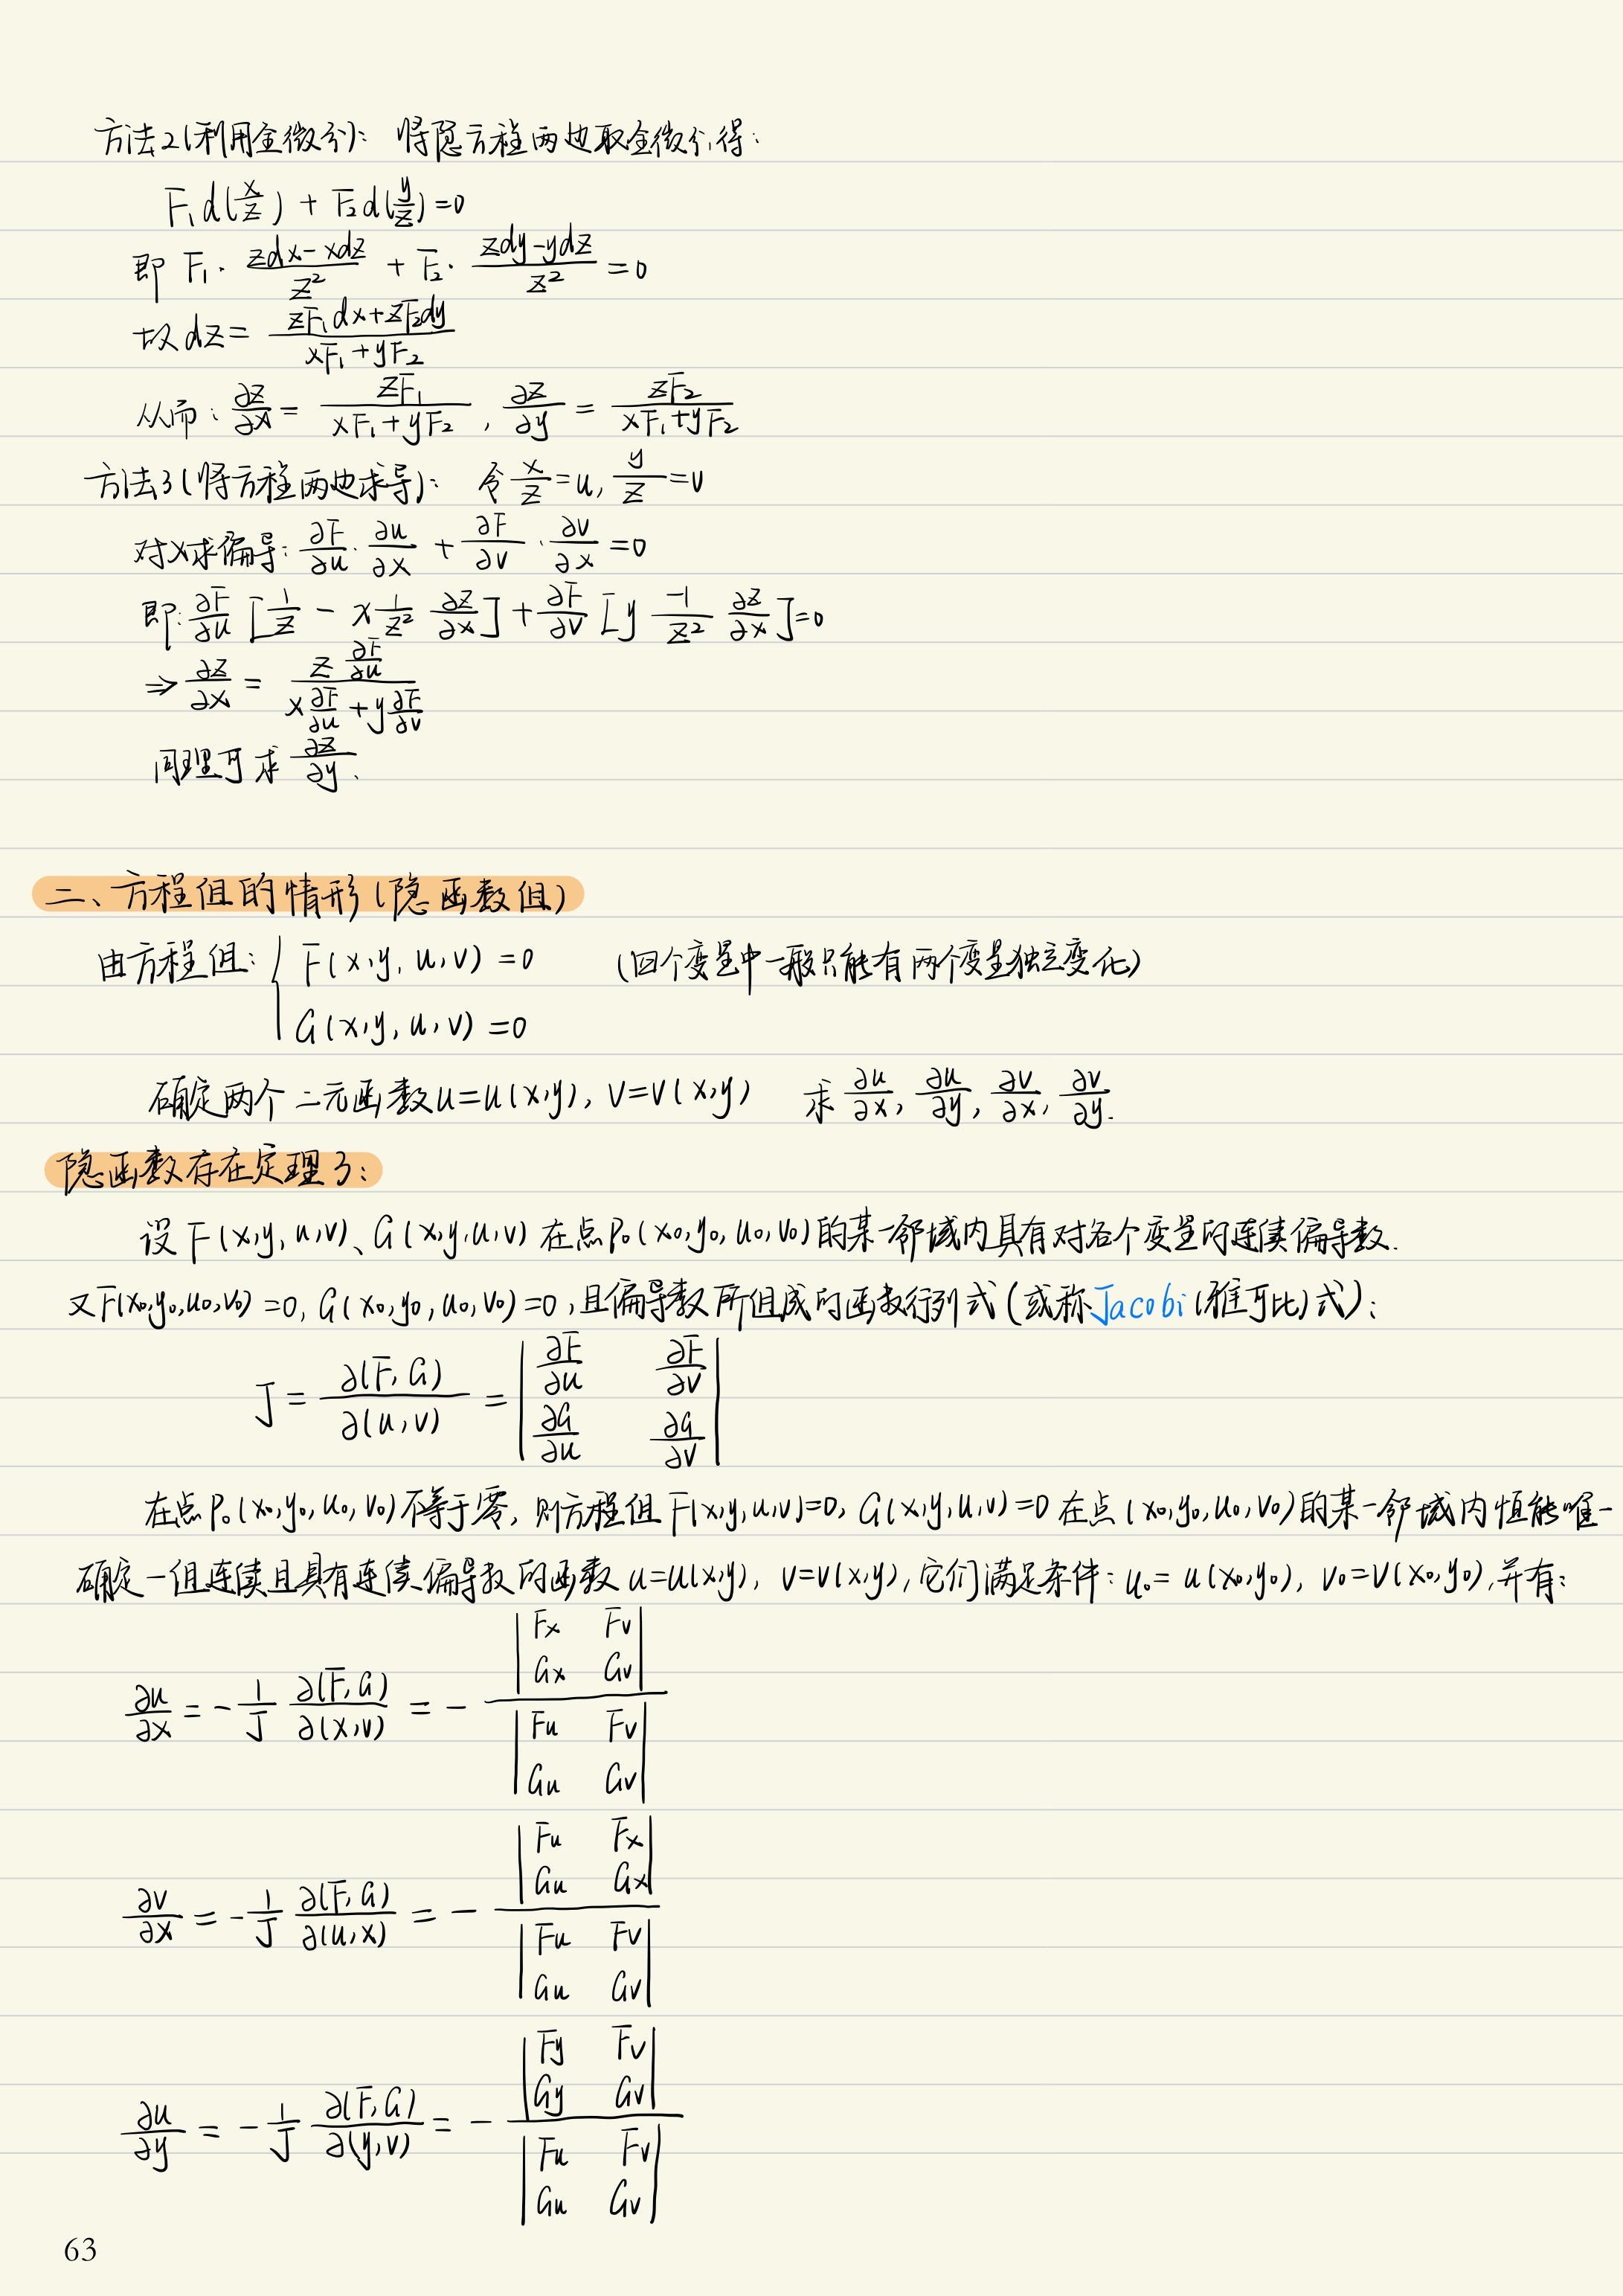 方法2(利用全微分): 将隐方程两边取全微分,得:
F₁d(x/z) + F₂d(y/z)=0
即 F₁· (zdx-xdz)/z² + F₂· (zdy-ydz)/z² =0
故dz= (zF₁dx+zF₂dy)/(xF₁+yF₂)
从而: ∂z/∂x = zF₁/(xF₁+yF₂), ∂z/∂y = zF₂/(xF₁+yF₂)
方法3(将方程两边求导): 令 x/z=u, y/z=v
对x求偏导: ∂F/∂u · ∂u/∂x + ∂F/∂v · ∂v/∂x =0
即: ∂F/∂u [1/z - x 1/z² ∂z/∂x] + ∂F/∂v [y -1/z² ∂z/∂x]=0
⇒ ∂z/∂x = (z ∂F/∂u)/(x ∂F/∂u + y ∂F/∂v)
同理可求 ∂z/∂y.
二、方程组的情形(隐函数组)
由方程组: { F(x,y,u,v)=0 (四个变量中一般只能有两个变量独立变化)
G(x,y,u,v)=0
确定两个二元函数u=u(x,y), v=v(x,y) 求 ∂u/∂x, ∂u/∂y, ∂v/∂x, ∂v/∂y.
隐函数存在定理3:
设F(x,y,u,v)、G(x,y,u,v)在点P₀(x₀,y₀,u₀,v₀)的某一邻域内具有对各个变量的连续偏导数.
又F(x₀,y₀,u₀,v₀)=0, G(x₀,y₀,u₀,v₀)=0,且偏导数所组成的函数行列式(或称Jacobi(雅可比)式):
J = ∂(F,G)/∂(u,v) = | ∂F/∂u ∂F/∂v |
| ∂G/∂u ∂G/∂v |
在点P₀(x₀,y₀,u₀,v₀)不等于零, 则方程组F(x,y,u,v)=0, G(x,y,u,v)=0在点(x₀,y₀,u₀,v₀)的某一邻域内恒能唯一
确定一组连续且具有连续偏导数的函数u=u(x,y), v=v(x,y),它们满足条件: u₀=u(x₀,y₀), v₀=v(x₀,y₀),并有:
| Fx Fv |
| Gx Gv |
∂u/∂x = - 1/J ∂(F,G)/∂(x,v) = -
| Fu Fv |
| Gu Gv |
| Fu Fx |
| Gu Gx |
∂v/∂x = - 1/J ∂(F,G)/∂(u,x) = -
| Fu Fv |
| Gu Gv |
| Fy Fv |
| Gy Gv |
∂u/∂y = - 1/J ∂(F,G)/∂(y,v) = -
| Fu Fv |
| Gu Gv |
63